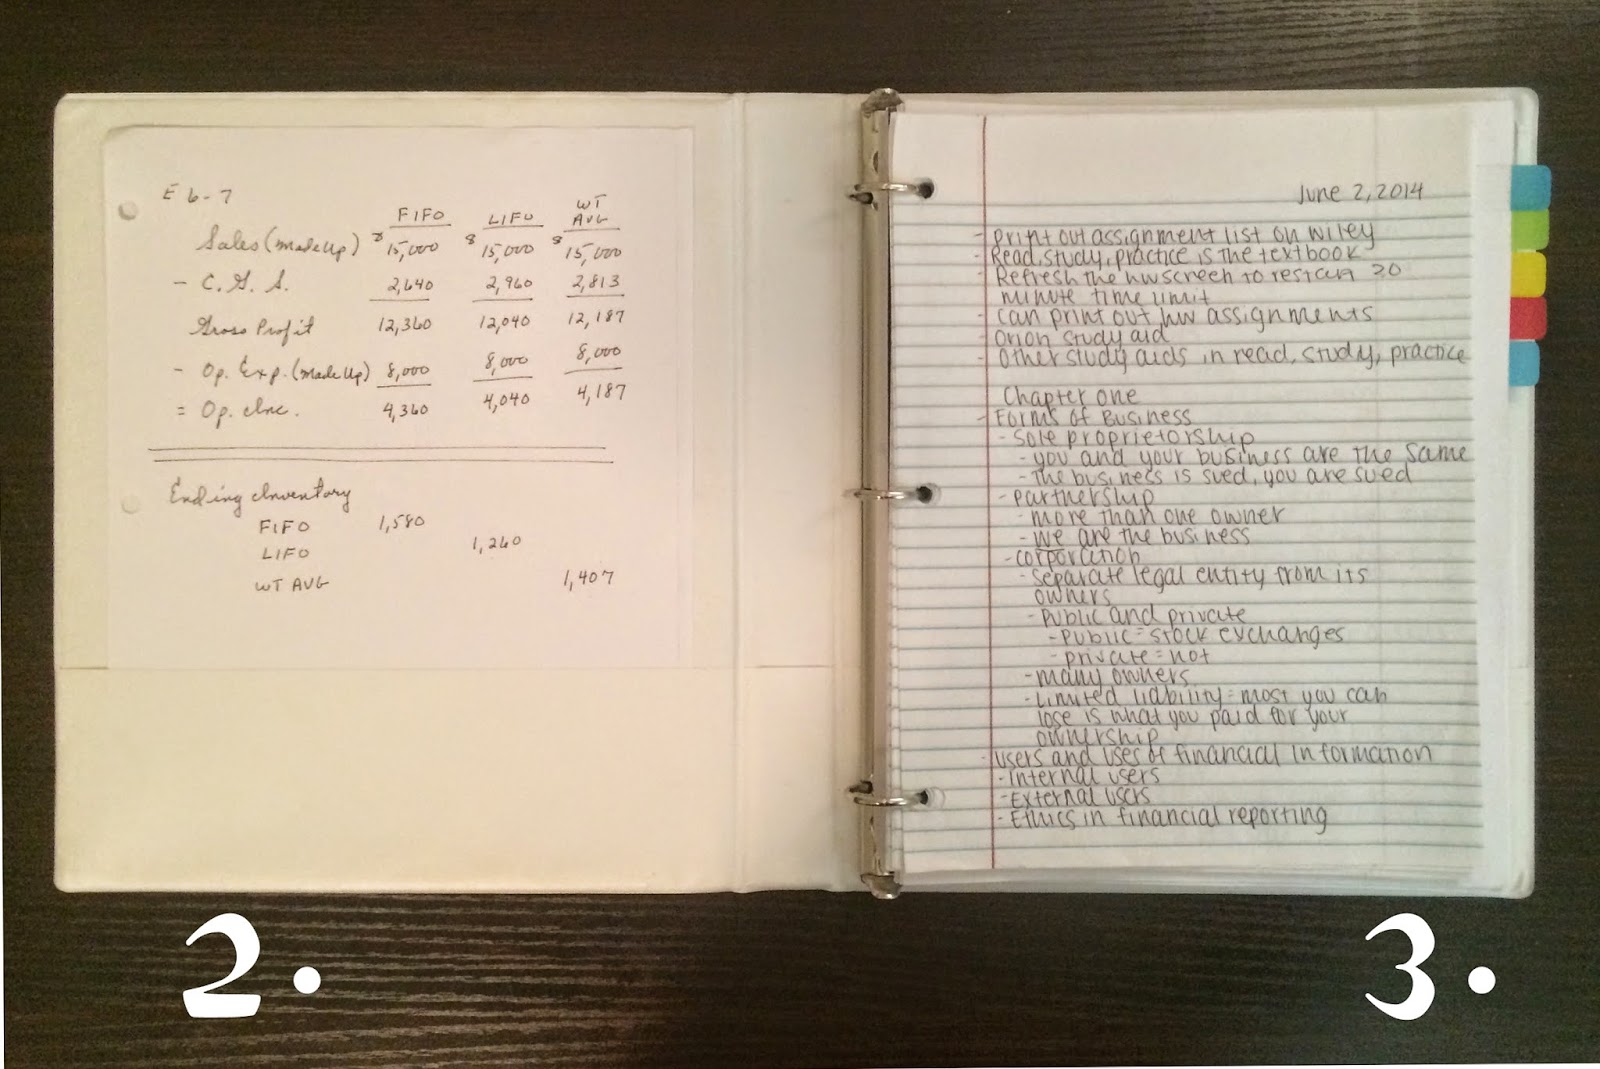 E 6-7
FIFO LIFO WT AVG
Sales (Made Up) $ 15,000 $ 15,000 $ 15,000
- C. G. S. 2,640 2,960 2,813
Gross Profit 12,360 12,040 12,187
- Op. Exp. (Made Up) 8,000 8,000 8,000
= Op. Inc. 4,360 4,040 4,187
Ending Inventory
FIFO 1,580
LIFO 1,260
WT AVG 1,407
2.
June 2, 2014
- Print out assignment list on wiley
- Read, study, practice is the textbook
- Refresh the hw screen to restart 30
minute time limit
- can print out hw assignments
- Orion study aid
- Other study aids in read, study, practice
Chapter one
- Forms of Business
- Sole proprietorship
- you and your business are the same
- the business is sued, you are sued
- partnership
- more than one owner
- we are the business
- corporation
- separate legal entity from its
owners
- Public and private
- Public = stock exchanges
- private = not
- many owners
- Limited liability = most you can
lose is what you paid for your
ownership
- users and uses of financial information
- Internal users
- External users
- Ethics in financial reporting
3.